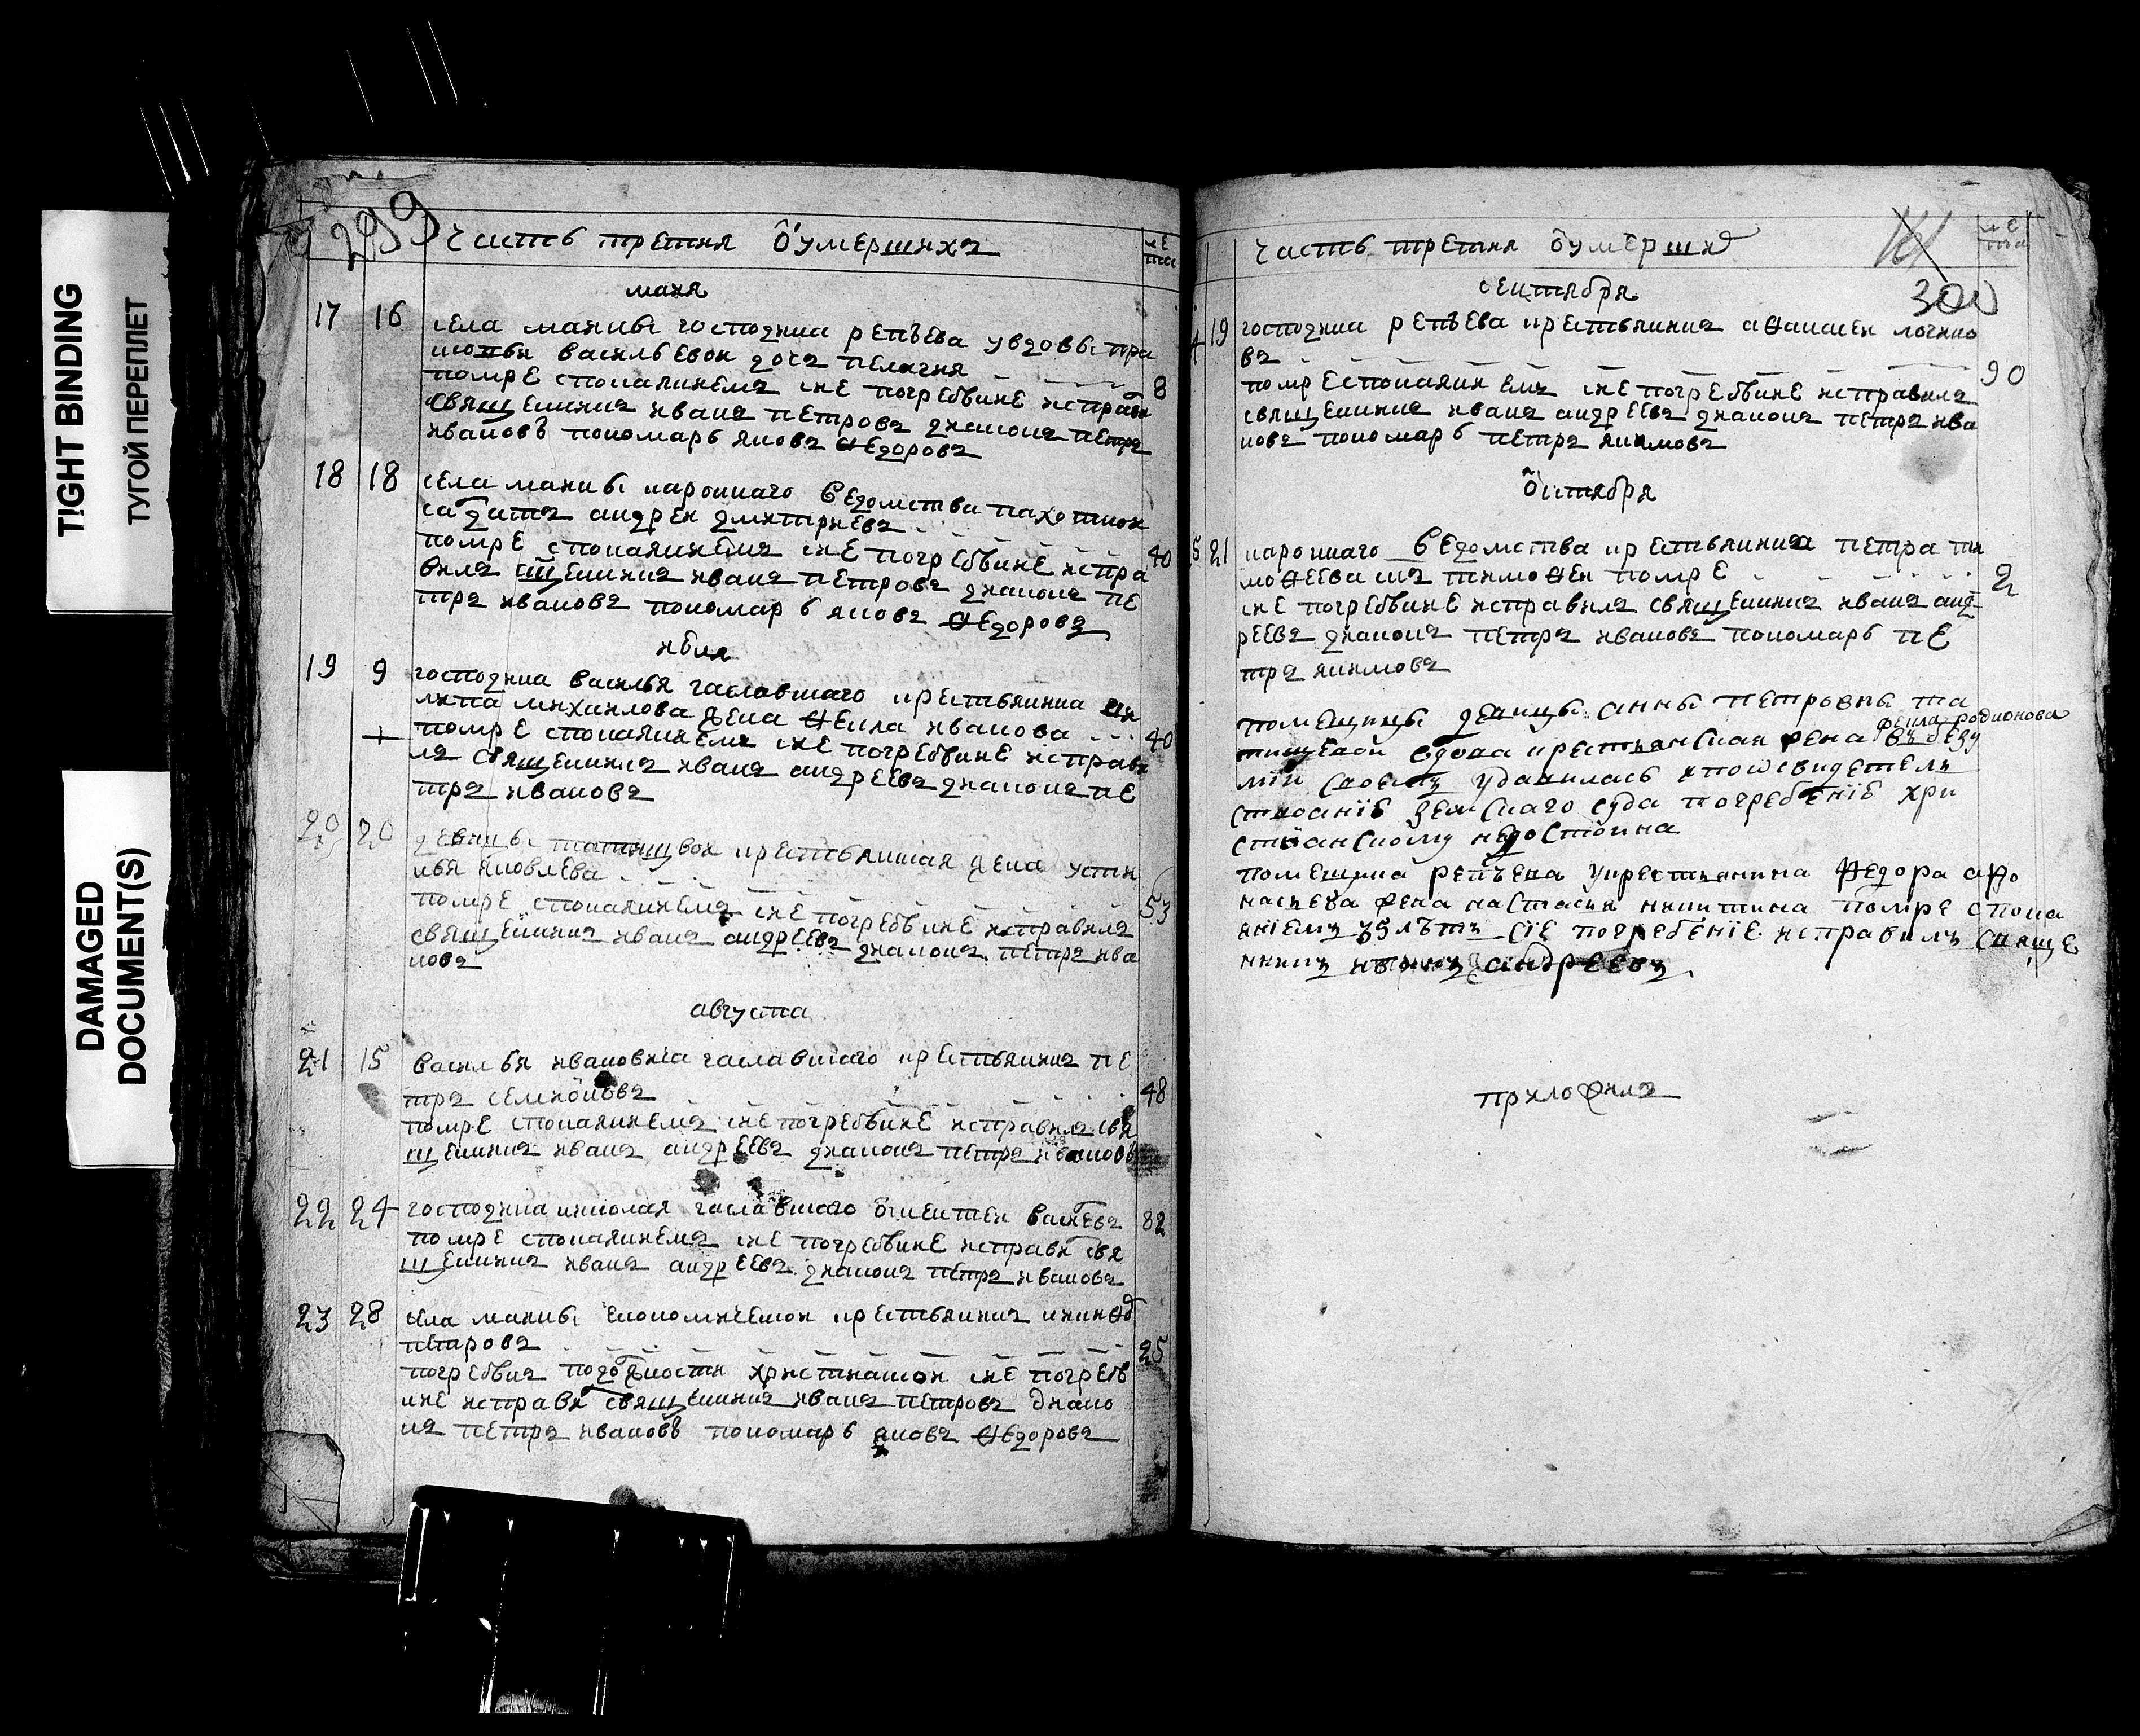 TIGHT BINDING
ТУГОЙ ПЕРЕПЛЕТ
DAMAGED
DOCUMENT(S)
299
часть третия о умершихъ
ле
та
маия
17 16 села маины господина репьева у вдовы пра
васильевой дочь пелагия
помре с покаяниемъ сие погребение исправи 8
священникъ иванъ петровъ диаконъ петръ
ивановъ пономарь яковъ ѳедоровъ
18 18 села маины каропкаго ведомства пахотной
салдатъ андреи дмитриевъ
помре с покаяниемъ сие погребение испра 40
вилъ сщенникъ иванъ петровъ диаконъ пе
тръ ивановъ пономарь яковъ ѳедоровъ
июля
19 9 господина василья чаславскаго крестьянина
михаилова жена ѳекла иванова
помре с покаяниемъ сие погребение исправи 40
лъ священникъ иванъ андреевъ диаконъ пе
тръ ивановъ
20 20 девицы татищевой крестьянская жена усти
нья яковлева
помре с покаяниемъ сие погребение исправилъ 53
священникъ иванъ андреевъ диаконъ петръ ива
новъ
августа
21 15 василья ивановича чаславскаго крестьянинъ пе
тръ семионовъ 48
помре с покаяниемъ сие погребение исправилъ свя
щенникъ иванъ андреевъ диаконъ петръ ивановъ
22 24 господина николая чаславскаго васиевъ 82
помре с покаяниемъ сие погребение исправи свя
щенникъ иванъ андреевъ диаконъ петръ ивановъ
23 28 села маины економическои крестьянинъ никиѳ
петровъ 25
погребенъ по должности христианскои сие погреб
ение исправи священникъ иванъ петровъ диако
нъ петръ ивановъ пономарь яковъ ѳедоровъ
часть третия о умерши
ле
та
300
сентября
19 господина репьева крестьянинъ аѳанасеи логино
въ 90
помре с покаяниемъ сие погребение исправилъ
священникъ иванъ андреевъ диаконъ петръ ива
новъ пономарь петръ якимовъ
октября
21 каропкаго ведомства крестьянина петра ти
моѳеева сиъ тимоѳеи помре 2
сие погребение исправилъ священникъ иванъ анд
реевъ диаконъ петръ ивановъ пономарь пе
тръ якимовъ
помещицы девицы анны петровны та
тищевой вдова крестьянская жена фекла родионова въ безу
мии своемъ удавилась и по освидетель
ствоаніе земскаго суда погребеніе хри
стіанскому недостойна
помещика репьева у крестьянина ѳедора аѳо
насиева жена настасья никитина помре с пока
яніемъ 35 лѣтъ сіе погребеніе исправилъ свяще
нникъ иванъ андреевъ
приложилъ